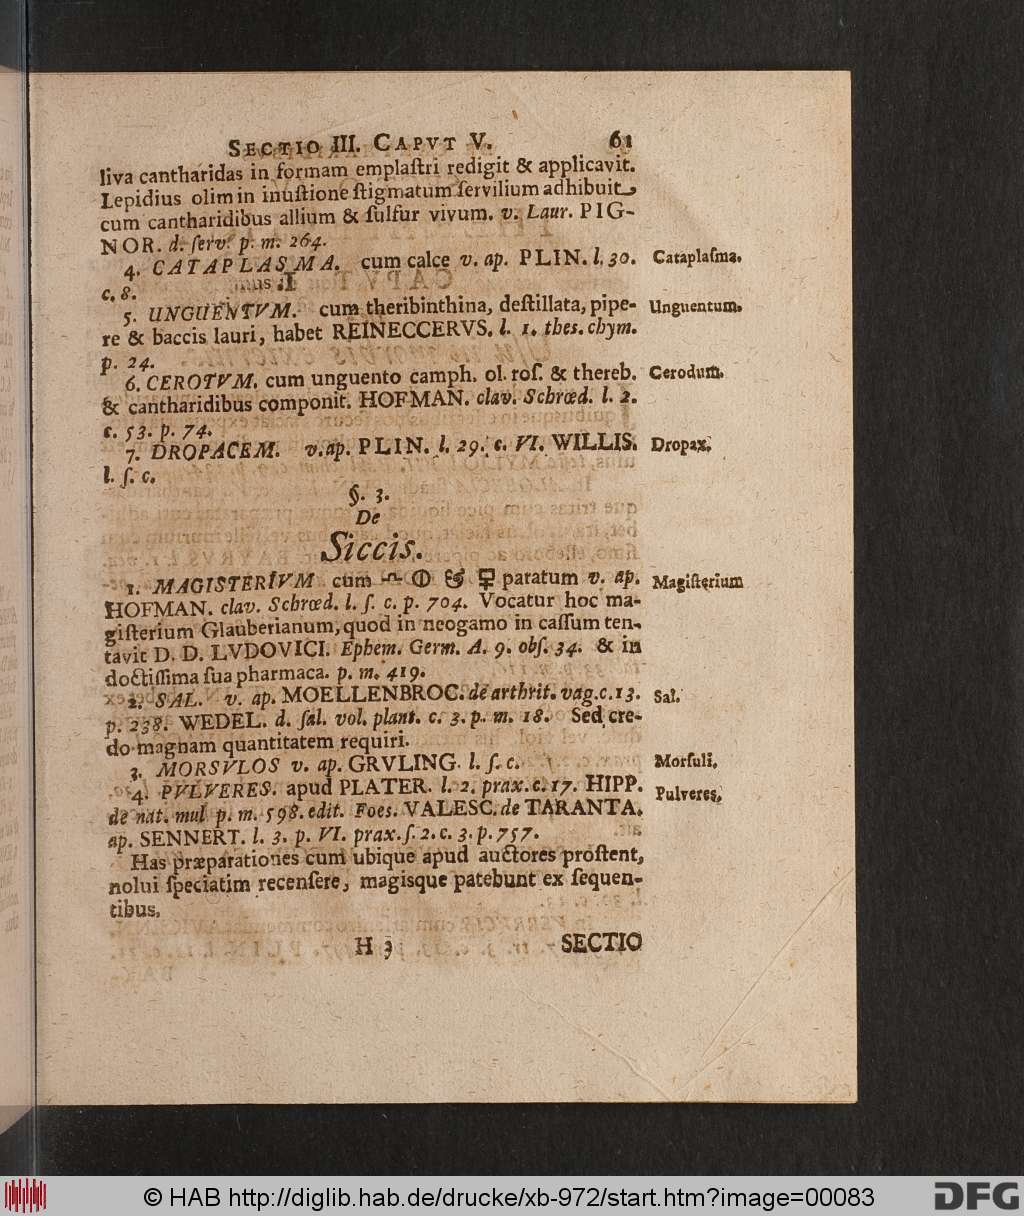 SECTIO III. CAPVT V. 61
liva cantharidas in formam emplaſtri redigit & applicavit.
Lepidius olim in inuſtione ſtigmatum ſervilium adhibuit,
cum cantharidibus allium & ſulfur vivum. v. Laur. PIG-
NOR. d. ſerv. p. m. 264.
4. CATAPLASMA. cum calce v. ap. PLIN. l. 30.
Cataplaſma.
c. 8.
5. UNGUENTVM. cum theribinthina, deſtillata, pipe-
Unguentum.
re & baccis lauri, habet REINECCERVS. l. 1. thes. chym.
p. 24.
6. CEROTVM. cum unguento camph. ol. roſ. & thereb.
Cerodum.
& cantharidibus componit. HOFMAN. clav. Schrœd. l. 2.
c. 53. p. 74.
7. DROPACEM. v. ap. PLIN. l. 29. c. VI. WILLIS.
Dropax.
l. ſ. c.
§. 3.
De
Siccis.
1. MAGISTERIVM cum paratum v. ap.
Magiſterium
HOFMAN. clav. Schrœd. l. ſ. c. p. 704. Vocatur hoc ma-
giſterium Glauberianum, quod in neogamo in caſſum ten-
tavit D. D. LVDOVICI. Ephem. Germ. A. 9. obſ. 34. & in
doctiſſima ſua pharmaca. p. m. 419.
2. SAL. v. ap. MOELLENBROC. de arthrit. vag. c. 13.
Sal.
p. 238. WEDEL. d. ſal. vol. plant. c. 3. p. m. 18. Sed cre-
do magnam quantitatem requiri.
3. MORSVLOS v. ap. GRVLING. l. ſ. c.
Morſuli.
4. PVLVERES. apud PLATER. l. 2. prax. c. 17. HIPP.
Pulveres.
de nat. mul p. m. 598. edit. Foes. VALESC. de TARANTA.
ap. SENNERT. l. 3. p. VI. prax. ſ. 2. c. 3. p. 757.
Has præparationes cum ubique apud auctores proſtent,
nolui ſpeciatim recenſere, magisque patebunt ex ſequen-
tibus.
H 3 SECTIO
© HAB http://diglib.hab.de/drucke/xb-972/start.htm?image=00083
DFG